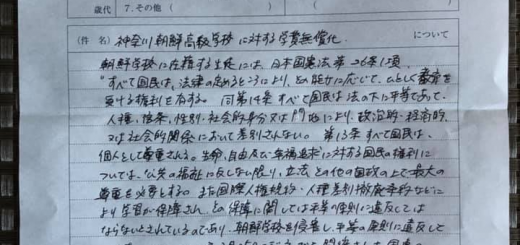 歳代 7.その他（ ）
（件 名）神奈川朝鮮高級学校に対する学費無償化 について
朝鮮学校に在籍する生徒には、日本国憲法第26条1項、
"すべて国民は、法律の定めるところにより、その能力に応じて、ひとしく教育を
受ける権利を有する。 同第14条 すべて国民は法の下に平等であって、
人種、信条、性別、社会的身分又は門地により、政治的、経済的、
又は社会的関係において差別されない。 第13条 すべて国民は、
個人として尊重される。生命、自由及び幸福追求に対する国民の権利に
ついては、公共の福祉に反しない限り、立法その他の国政の上で最大の
尊重を必要とする。また国際人権規約・人種差別撤廃条約などに
より学習が保障され、その保障に関しては平等の原則に違反しては
ならないとされているのであり、朝鮮学校を侵害し、平等の原則に違反して